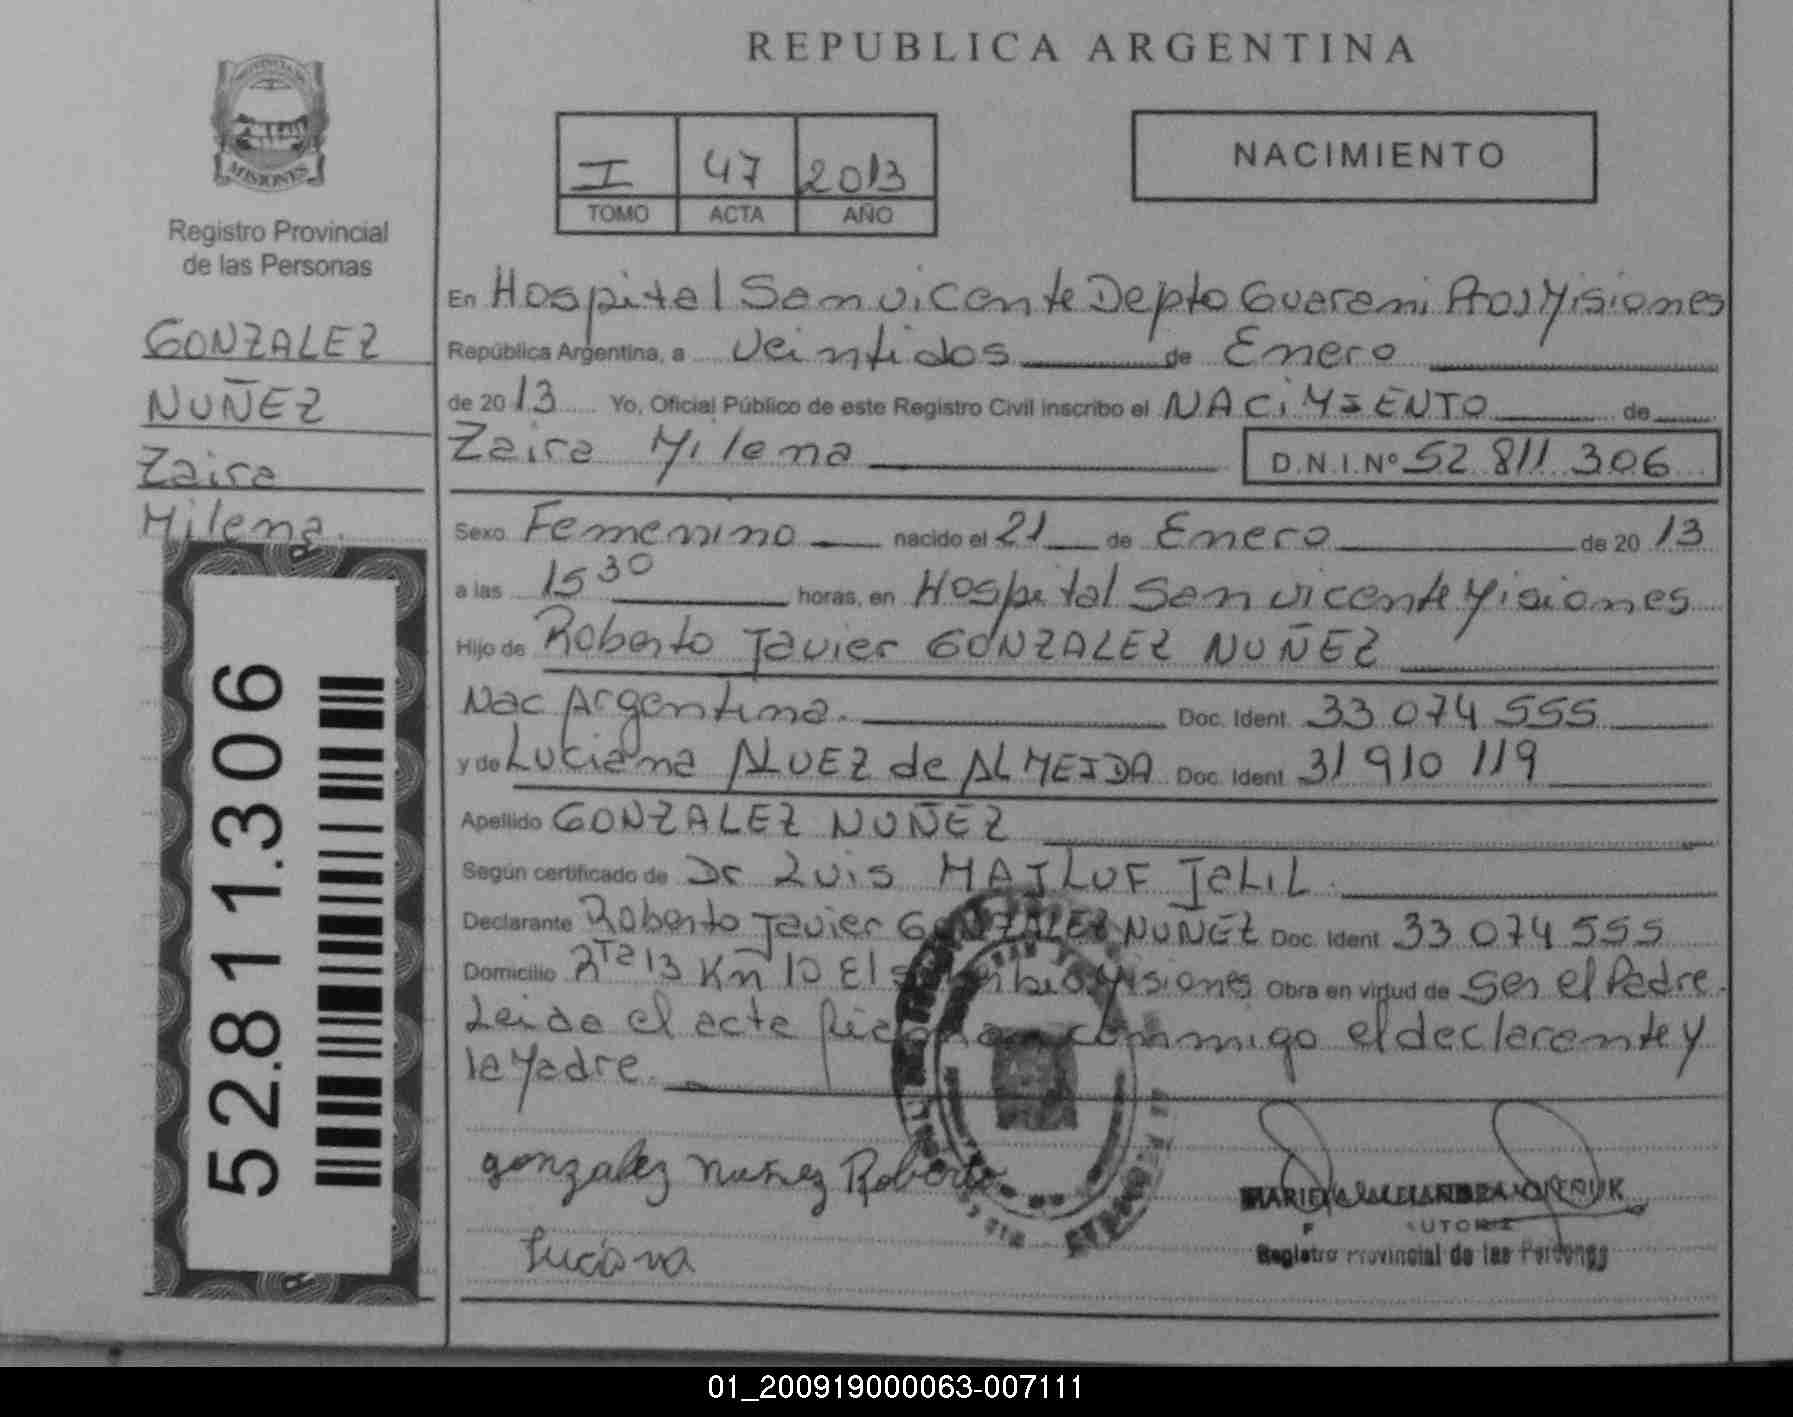 REPUBLICA ARGENTINA
PROVINCIA DE
MISIONES
Registro Provincial
de las Personas
GONZALEZ
NUÑEZ
Zaira
Milena.
52.811.306
I 47 2013
TOMO ACTA AÑO
NACIMIENTO
En Hospital San vicente Depto Guarani Misiones
República Argentina, a veintidos de Enero
de 2013 Yo, Oficial Público de este Registro Civil inscribo el NACIMIENTO de
Zaira Milena D.N.I.Nº 52 811 306
Sexo Femenino nacido el 21 de Enero de 2013
a las 15 30 horas, en Hospital San vicente Misiones
Hijo de Roberto Javier GONZALEZ NUÑEZ
Nac Argentina. Doc. Ident. 33 074 555
y de Luciana ALVEZ de ALMEIDA Doc. Ident 31 910 119
Apellido GONZALEZ NUÑEZ
Según certificado de Dr Luis MAJLUF JaLIL.
Declarante Roberto Javier GONZALEZ NUÑEZ Doc. Ident 33 074 555
Domicilio Rta 13 Km 10 El Misiones Obra en virtud de Ser el Padre.
Leida el acta conmigo el declarante y
la Madre.
gonzalez nuñez Roberto
Luciana
Registro Provincial de las Personas
01_200919000063-007111